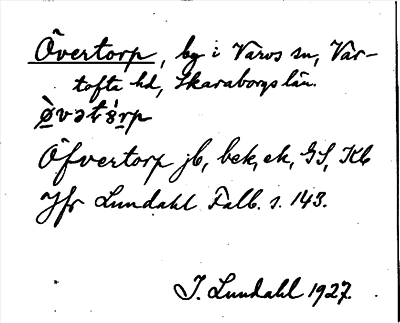 Övertorp, by i Varvs sn, Var-
tofta hd, Skaraborgs län.
Öfvertorp jb, bek, ek, GS, Kb
Jfr Lundahl Falb. s. 143.
I. Lundahl 1927.